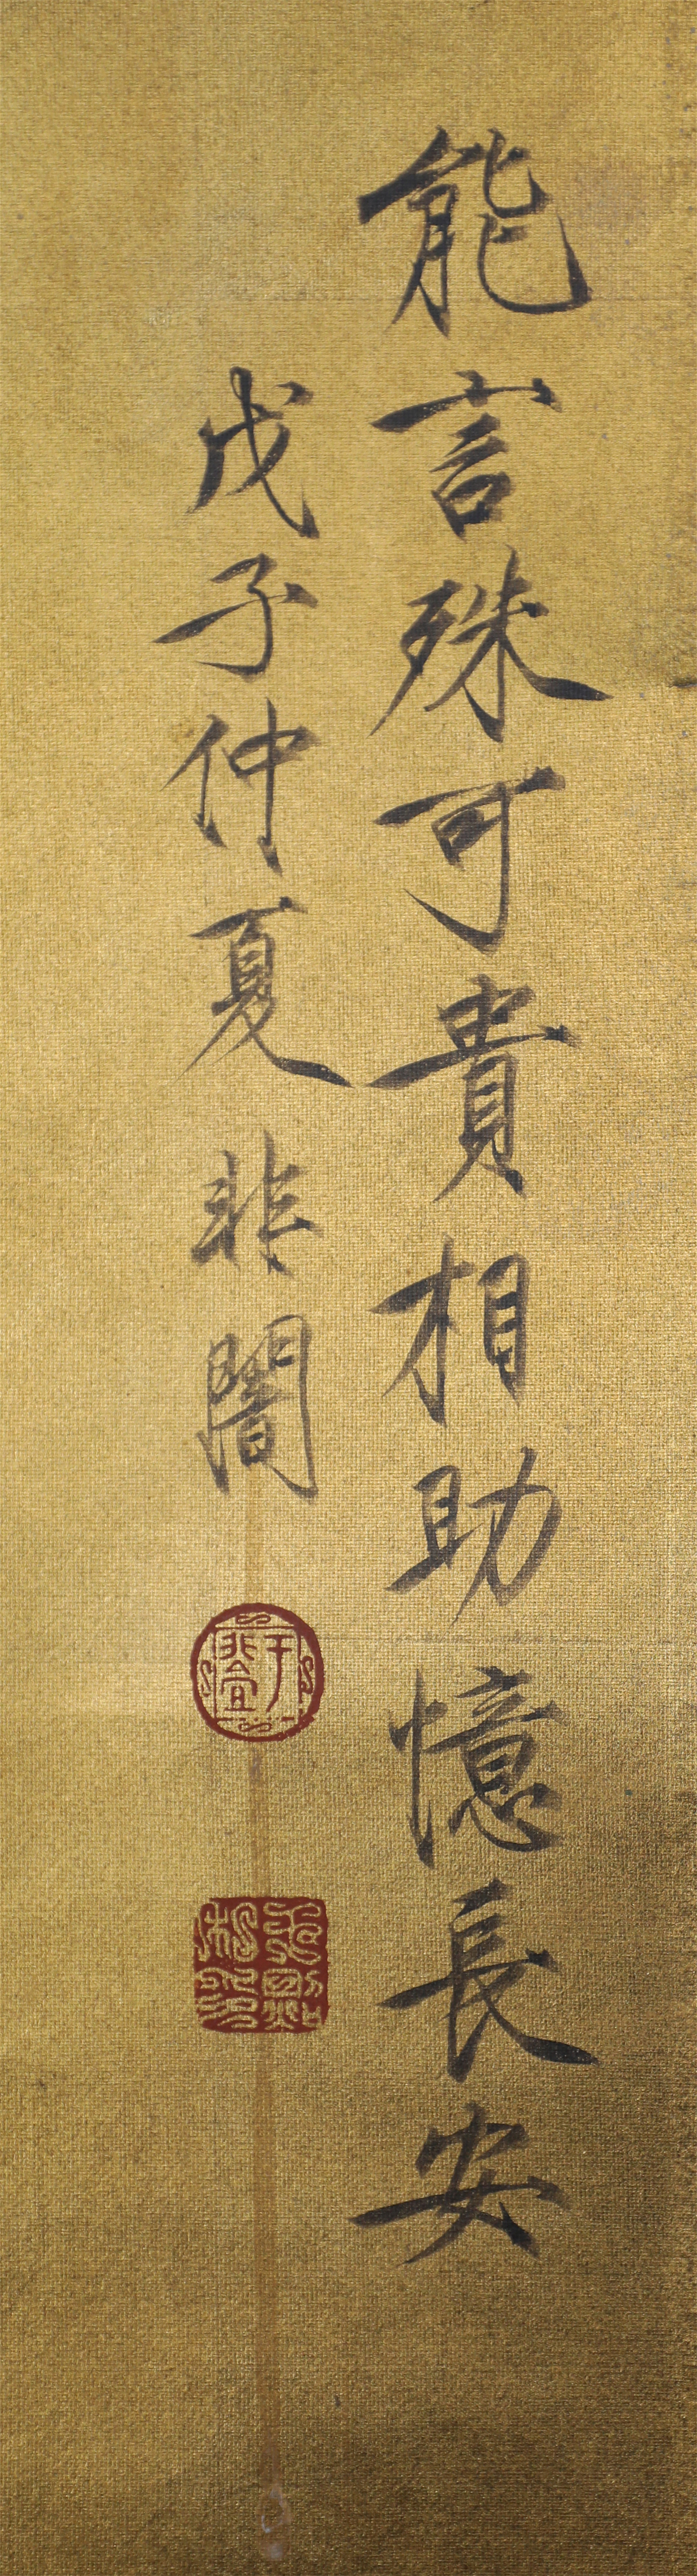 能言殊可貴相助憶長安
戊子仲夏 非闇
于非闇